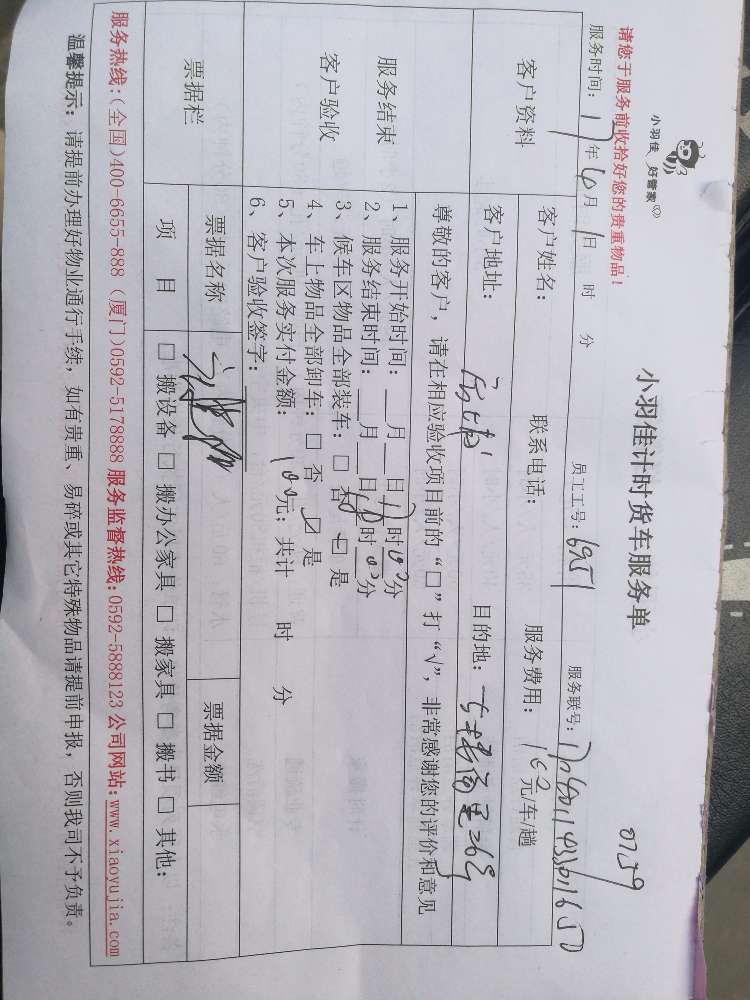 小羽佳 好管家
小羽佳计时货车服务单
0759
请您于服务前收拾好您的贵重物品！
服务时间：17年6月1日 时 分 员工工号：6951 服务联号：
客户资料
客户姓名： 联系电话： 服务费用：100元/车/趟
客户地址： 目的地：
服务结束
客户验收
尊敬的客户，请在相应验收项目前的“□”打“√”，非常感谢您的评价和意见
1、服务开始时间：__月__日17时00分
2、服务结束时间：__月__日18时00分
3、候车区物品全部装车：□ 否 ☑ 是
4、车上物品全部卸车：□ 否 ☑ 是
5、本次服务实付金额：100元；共计 时 分
6、客户验收签字：
票据栏
票据名称 票据金额
项 目 □ 搬设备 □ 搬办公家具 □ 搬家具 □ 搬书 □ 其他：
服务热线：(全国)400-6655-888 (厦门)0592-5178888 服务监督热线：0592-5888123 公司网站：www.xiaoyujia.com
温馨提示：请提前办理好物业通行手续，如有贵重、易碎或其它特殊物品请提前申报，否则我司不予负责。